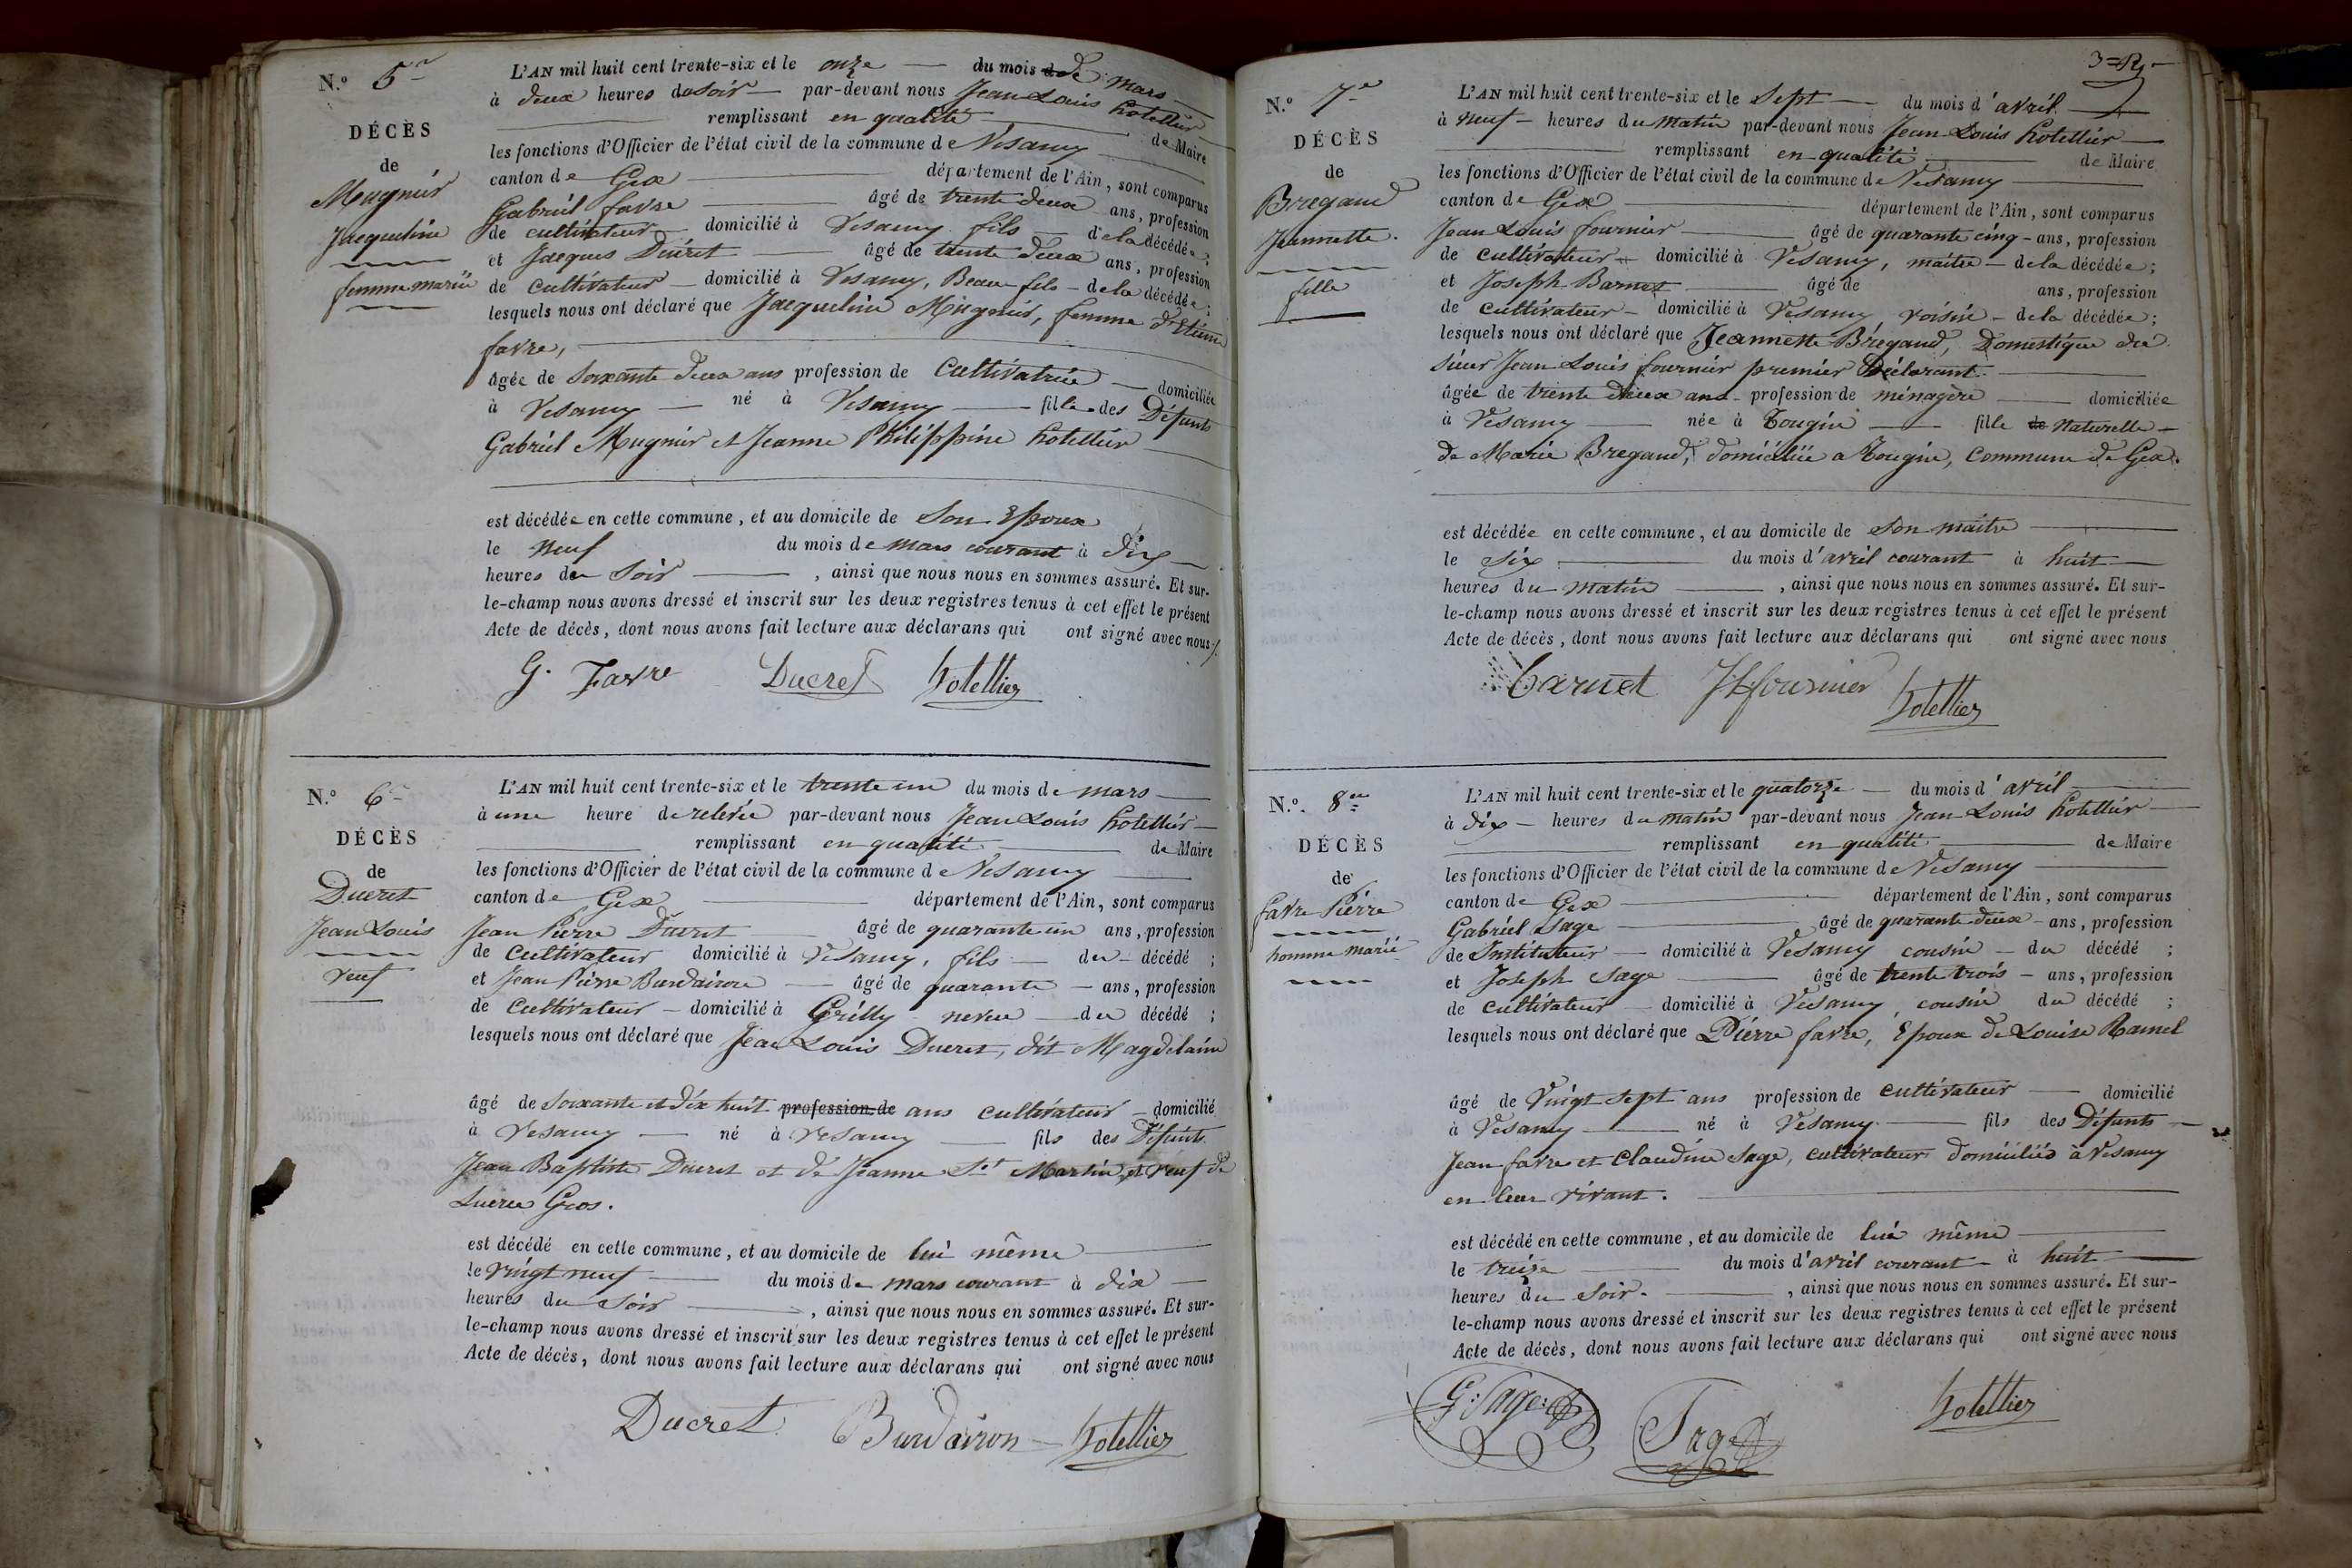 N.° 5
DÉCÈS
de
Mugnier
Jacqueline
femme mariée
L'AN mil huit cent trente-six et le onze du mois de mars
à deux heures du soir par-devant nous Jean Louis hotellier
remplissant en qualité de Maire
les fonctions d'Officier de l'état civil de la commune de Vesancy
canton de Gex département de l'Ain, sont comparus
Gabriel favre âgé de trente deux ans, profession
de cultivateur domicilié à Vesancy fils de la décédée;
et Jacques Ducret âgé de trente deux ans, profession
de cultivateur domicilié à Vesancy, Beau-fils de la décédée;
lesquels nous ont déclaré que Jacqueline Mugnier, femme d'Etienne
favre,
âgée de soixante deux ans profession de cultivatrice domiciliée
à Vesancy né à Vesancy fille des Défunts
Gabriel Mugnier et Jeanne Philippine hotellier
est décédée en cette commune, et au domicile de son Epoux
le neuf du mois de mars courant à dix
heures du soir, ainsi que nous nous en sommes assuré. Et sur-
le-champ nous avons dressé et inscrit sur les deux registres tenus à cet effet le présent
Acte de décès, dont nous avons fait lecture aux déclarans qui ont signé avec nous
G. Favre Ducret hotellier
N.° 6
DÉCÈS
de
Ducret
Jean Louis
veuf
L'AN mil huit cent trente-six et le trente un du mois de mars
à une heure de relevée par-devant nous Jean Louis hotellier
remplissant en qualité de Maire
les fonctions d'Officier de l'état civil de la commune de Vesancy
canton de Gex département de l'Ain, sont comparus
Jean Pierre Ducret âgé de quarante un ans, profession
de cultivateur domicilié à Vesancy, fils du décédé;
et Jean Pierre Burdairon âgé de quarante ans, profession
de cultivateur domicilié à Grilly neveu du décédé;
lesquels nous ont déclaré que Jean Louis Ducret, dit Magdelaine
âgé de soixante et dix huit profession de ans cultivateur domicilié
à Vesancy né à Vesancy fils des Défunts
Jean Baptiste Ducret et de Jeanne St Martin, et veuf de
Lucrece Gros.
est décédé en cette commune, et au domicile de lui même
le vingt neuf du mois de mars courant à dix
heures du soir, ainsi que nous nous en sommes assuré. Et sur-
le-champ nous avons dressé et inscrit sur les deux registres tenus à cet effet le présent
Acte de décès, dont nous avons fait lecture aux déclarans qui ont signé avec nous
Ducret Burdairon hotellier
N.° 7e
DÉCÈS
de
Bregand
Jeannette.
fille
L'AN mil huit cent trente-six et le sept du mois d'avril
à neuf heures du matin par-devant nous Jean-Louis hotellier
remplissant en qualité de Maire
les fonctions d'Officier de l'état civil de la commune de Vesancy
canton de Gex département de l'Ain, sont comparus
Jean Louis fournier âgé de quarante cinq ans, profession
de cultivateur domicilié à Vesancy, maitre de la décédée;
et Joseph Barnet âgé de ans, profession
de cultivateur domicilié à Vesancy voisin de la décédée;
lesquels nous ont déclaré que Jeannette Brégand, Domestique du
sieur Jean Louis fournier premier Déclarant.
âgée de trente deux ans profession de ménagère domiciliée
à Vesancy née à Tougin fille de naturelle
de Marie Bregand, domiciliée a Tougin, commune de Gex.
est décédée en cette commune, et au domicile de son maitre
le six du mois d'avril courant à huit
heures du matin, ainsi que nous nous en sommes assuré. Et sur-
le-champ nous avons dressé et inscrit sur les deux registres tenus à cet effet le présent
Acte de décès, dont nous avons fait lecture aux déclarans qui ont signé avec nous
Barnet JLfournier hotellier
N.° 8e
DÉCÈS
de
favre Pierre
homme marié
L'AN mil huit cent trente-six et le quatorze du mois d'avril
à dix heures du matin par-devant nous Jean-Louis hotellier
remplissant en qualité de Maire
les fonctions d'Officier de l'état civil de la commune de Vesancy
canton de Gex département de l'Ain, sont comparus
Gabriel Sage âgé de quarante-deux ans, profession
de Instituteur domicilié à Vesancy cousin du décédé;
et Joseph Sage âgé de trente trois ans, profession
de cultivateur domicilié à Vesancy, cousin du décédé;
lesquels nous ont déclaré que Pierre favre, Epoux de Louise Ramel
âgé de vingt sept ans profession de cultivateur domicilié
à Vesancy né à Vesancy fils des Défunts
Jean favre et Claudine Sage, cultivateurs domiciliés à Vesancy
en leur vivant.
est décédé en cette commune, et au domicile de lui même
le treize du mois d'avril courant à huit
heures du soir., ainsi que nous nous en sommes assuré. Et sur-
le-champ nous avons dressé et inscrit sur les deux registres tenus à cet effet le présent
Acte de décès, dont nous avons fait lecture aux déclarans qui ont signé avec nous
G: Sage: Sage hotellier